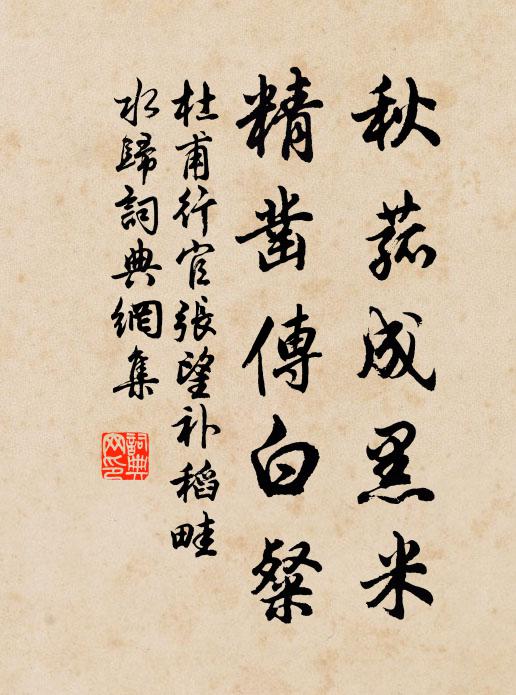 秋菰成黑米
精凿傳白粲
杜甫行官張望补稻畦
水歸詞典網集
詞典
网印